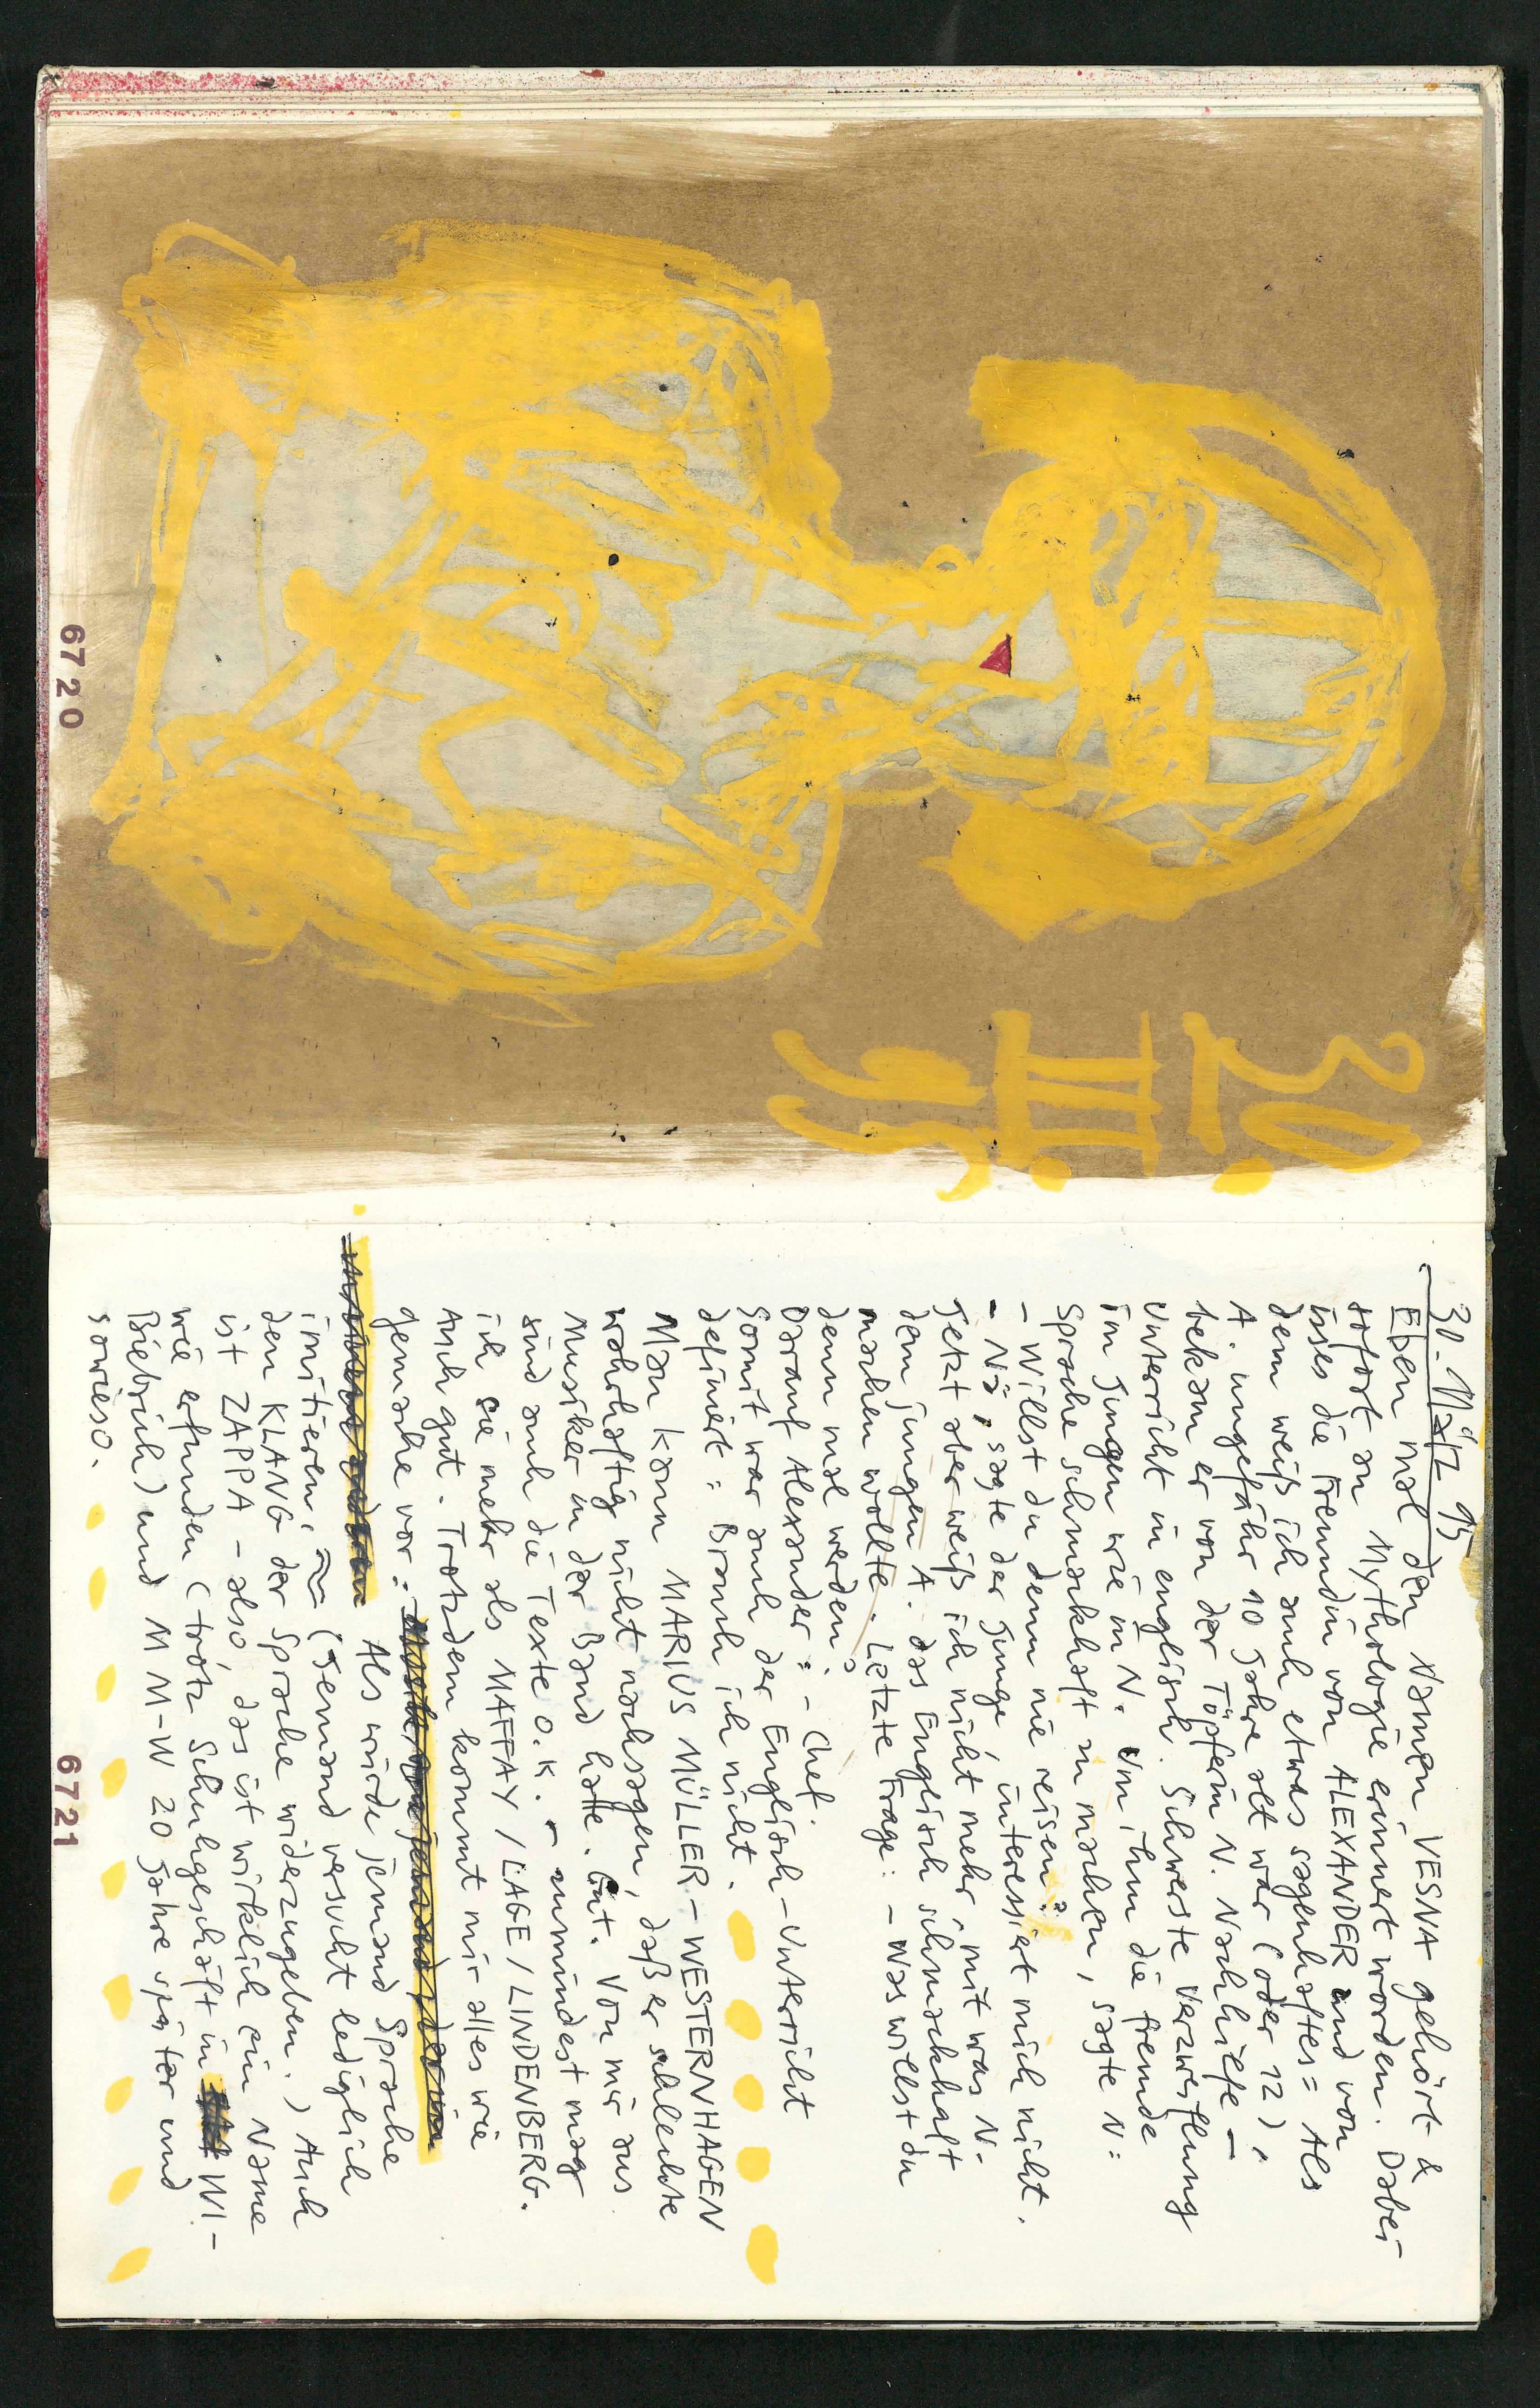 30.
III.
95
6720
30. März 95
Eben mal den Namen VESNA gehört &
sofort an Mythologie erinnert worden. Dabei
isses die Freundin von ALEXANDER und von
dem weiß ich auch etwas sagenhaftes = Als
A. ungefähr 10 Jahre alt war (oder 12),
bekam er von der Töpferin N. Nachhilfe –
Unterricht in englisch. Schwerste Verzweiflung
im Jungen wie in N. Um ihm die fremde
Sprache schmackhaft zu machen, sagte N:
– Willst du denn nie reisen?
– Nä, sagte der Junge, interessiert mich nicht.
Jetzt aber weiß ich nicht mehr, mit was N.
dem jungen A. das Englisch schmackhaft
machen wollte. Letzte Frage: – Was willst du
denn mal werden?
Darauf Alexander: – Chef.
Somit war auch der Englisch-Unterricht
definiert: Brauch ich nicht.
Man kann MARIUS MÜLLER-WESTERNHAGEN
wahrhaftig nicht nachsagen, daß er schlechte
Musiker in der Band hätte. Gut. Von mir aus
sind auch die Texte O.K. – zumindest mag
ich sie mehr als MAFFAY / LAGE / LINDENBERG.
Auch gut. Trotzdem kommt mir alles wie
gemache vor:
Als würde jemand Sprache
imitieren. (Jemand versucht lediglich
den KLANG der Sprache widerzugeben.) Auch
ist ZAPPA – also, das ist wirklich ein Name
wie erfunden (trotz Schuhgeschäft in WI-
Biebrich) und M M-W 20 Jahre später und
sowieso.
6721